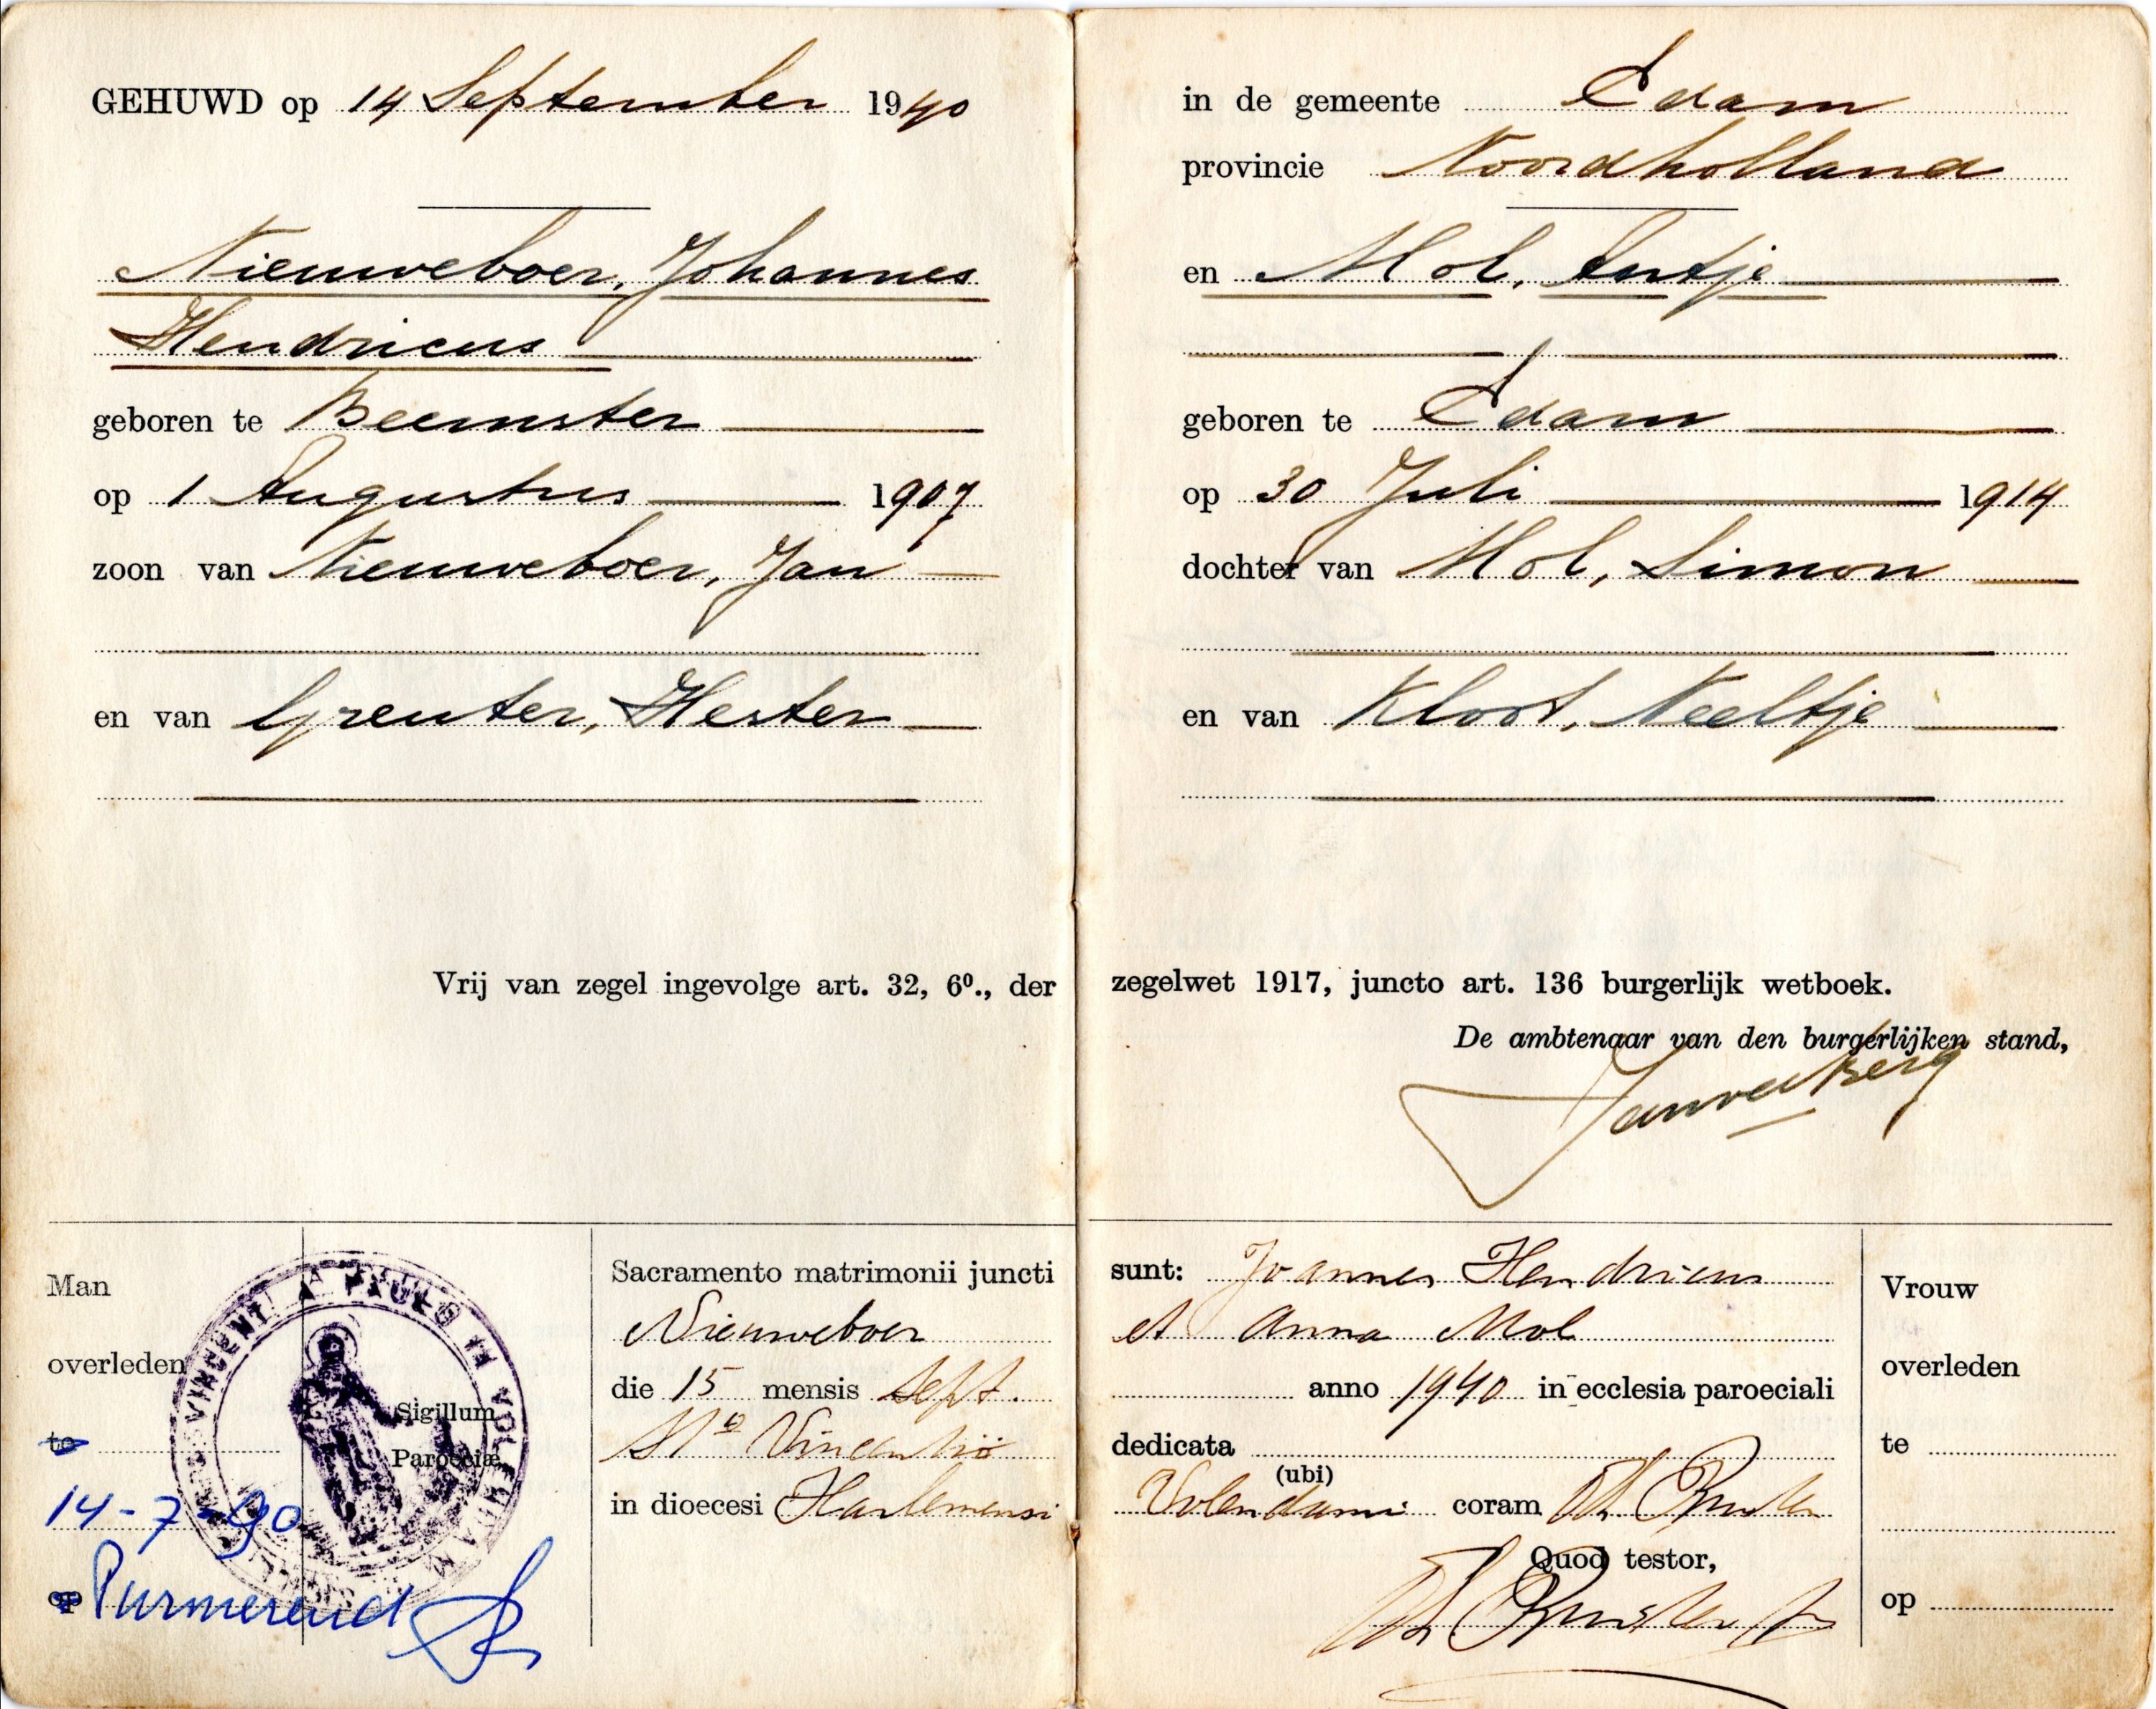 GEHUWD op 14 September 1940
Nieuweboer, Johannes
Hendricus
geboren te Beemster
op 1 Augustus 1907
zoon van Nieuweboer, Jan
en van Greuter, Hester
Vrij van zegel ingevolge art. 32, 6º., der
Man
overleden
te
14-7-90
op Purmerend
Sigillum
Paroeciæ
VINCENTII A PAULO IN VOLENDAM
Sacramento matrimonii juncti
Nieuweboer
die 15 mensis Sept.
Sto Vincentio
in dioecesi Harlemensi
in de gemeente Edam
provincie Noordholland
en Mol, Antje
geboren te Edam
op 30 Juli 1914
dochter van Mol, Simon
en van Kloot, Neeltje
zegelwet 1917, juncto art. 136 burgerlijk wetboek.
De ambtenaar van den burgerlijken stand,
sunt: Joannes Hendricus
et Anna Mol
anno 1940 in ecclesia paroeciali
dedicata
(ubi)
Volendam coram
Quod testor,
Vrouw
overleden
te
op